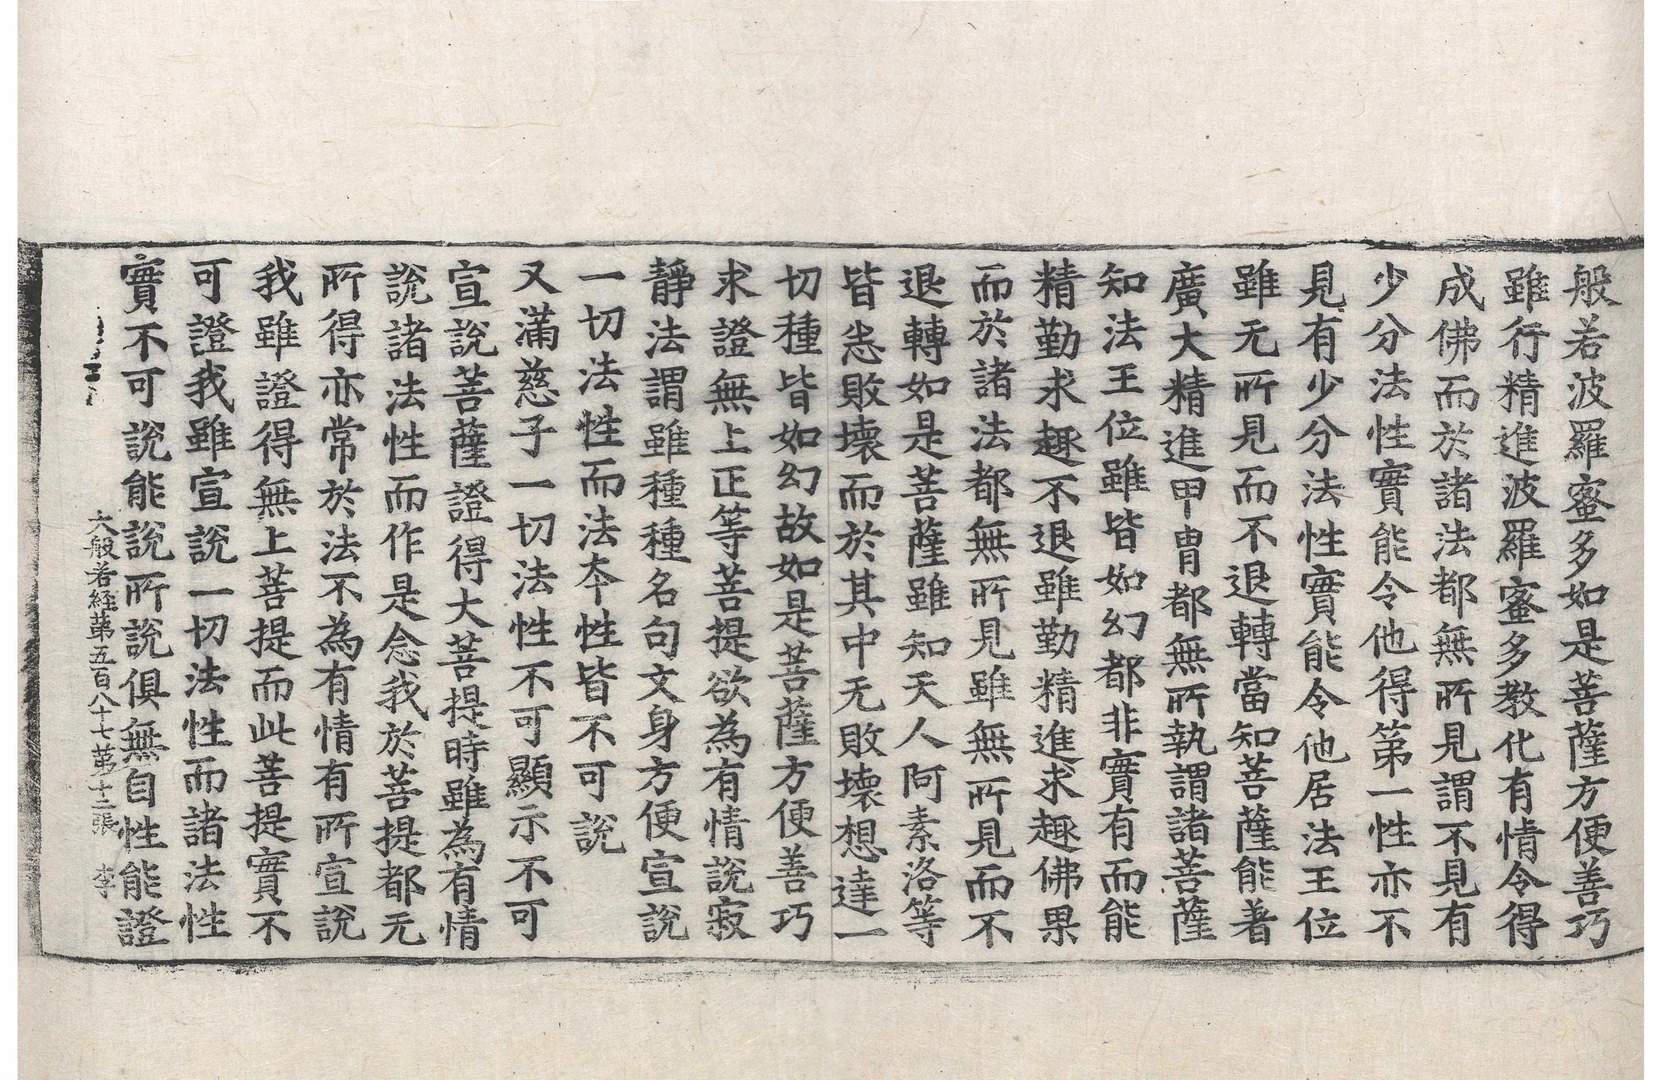 般若波羅蜜多如是菩薩方便善巧
雖行精進波羅蜜多教化有情令得
成佛而於諸法都無所見謂不見有
少分法性實能令他得第一性亦不
見有少分法性實能令他居法王位
雖无所見而不退轉當知菩薩能著
廣大精進甲冑都無所執謂諸菩薩
知法王位雖皆如幻都非實有而能
精勤求趣不退雖勤精進求趣佛果
而於諸法都無所見雖無所見而不
退轉如是菩薩雖知天人阿素洛等
皆恙敗壞而於其中无敗壞想達一
切種皆如幻故如是菩薩方便善巧
求證無上正等菩提欲為有情說寂
靜法謂雖種種名句文身方便宣說
一切法性而法夲性皆不可說
又滿慈子一切法性不可顯示不可
宣說菩薩證得大菩提時雖為有情
說諸法性而作是念我於菩提都无
所得亦常於法不為有情有所宣說
我雖證得無上菩提而此菩提實不
可證我雖宣說一切法性而諸法性
實不可說能說所說俱無自性能證
大般若経苐五百八十七苐十二張 李